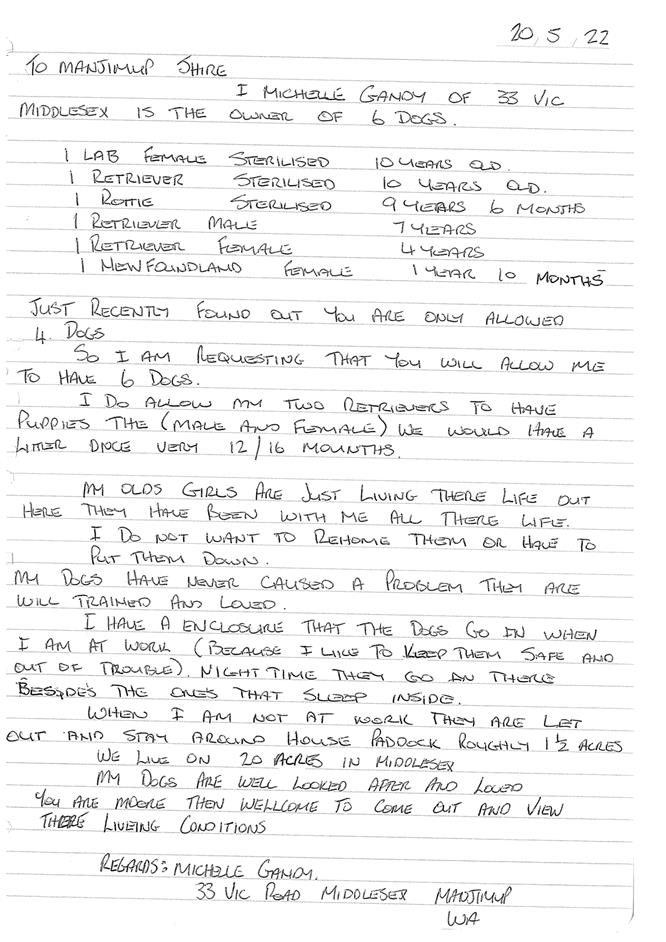 20/5/22
TO MANJIMUP SHIRE
I MICHELLE GANDY OF 33 VIC
MIDDLESEX IS THE OWNER OF 6 DOGS.
1 LAB FEMALE STERILISED 10 YEARS OLD.
1 RETRIEVER STERILISED 10 YEARS OLD.
1 ROTTIE STERILISED 9 YEARS 6 MONTHS
1 RETRIEVER MALE 7 YEARS
1 RETRIEVER FEMALE 4 YEARS
1 NEWFOUNDLAND FEMALE 1 YEAR 10 MONTHS
JUST RECENTLY FOUND OUT YOU ARE ONLY ALLOWED
4. DOGS
SO I AM REQUESTING THAT YOU WILL ALLOW ME
TO HAVE 6 DOGS.
I DO ALLOW MY TWO RETRIEVERS TO HAVE
PUPPIES THE (MALE AND FEMALE) WE WOULD HAVE A
LITTER ONCE VERY 12/16 MOUNTHS.
MY OLDS GIRLS ARE JUST LIVING THERE LIFE OUT
HERE THEY HAVE BEEN WITH ME ALL THERE LIFE.
I DO NOT WANT TO REHOME THEM OR HAVE TO
PUT THEM DOWN.
MY DOGS HAVE NEVER CAUSED A PROBLEM THEY ARE
WILL TRAINED AND LOVED.
I HAVE A ENCLOSURE THAT THE DOGS GO IN WHEN
I AM AT WORK (BECAUSE I LIKE TO KEEP THEM SAFE AND
OUT OF TROUBLE). NIGHT TIME THEY GO IN THERE
BESIDE'S THE ONE'S THAT SLEEP INSIDE.
WHEN I AM NOT AT WORK THEY ARE LET
OUT AND STAY AROUND HOUSE PADDOCK ROUGHLY 1½ ACRES
WE LIVE ON 20 ACRES IN MIDDLESEX
MY DOGS ARE WELL LOOKED AFTER AND LOVED
YOU ARE MOORE THEN WELLCOME TO COME OUT AND VIEW
THERE LIVEING CONDITIONS
REGARDS: MICHELLE GANDY.
33 VIC ROAD MIDDLESEX MANJIMUP
WA